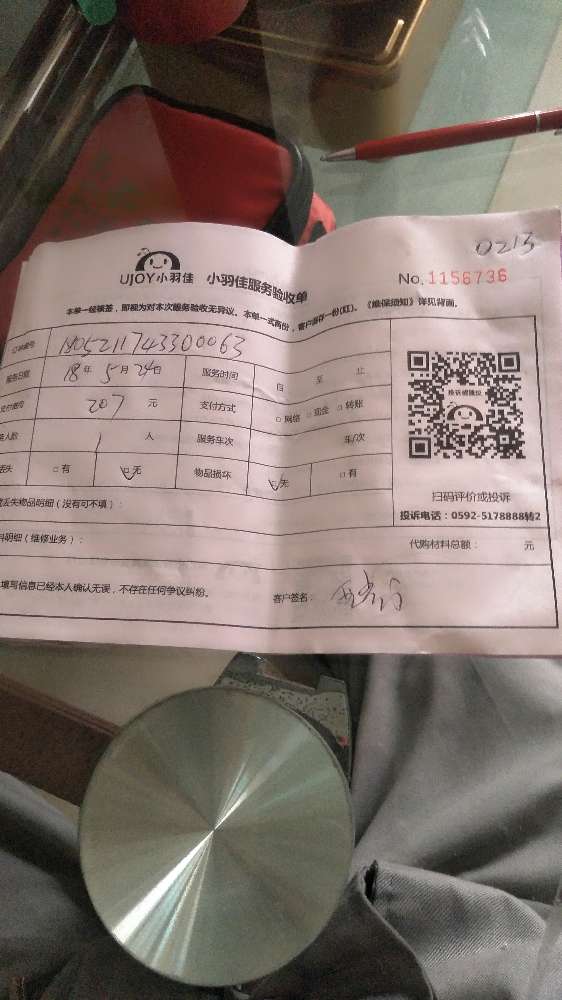 0213
UJOY小羽佳 小羽佳服务验收单 No.1156736
本单一经核签，即视为对本次服务验收无异议。本单一式两份，客户留存一份(红)。《维保须知》详见背面。
订单编号
服务日期 18年5月24日 服务时间 自 至 止
支付费用 207元 支付方式 □网络 □现金 □转账
人数 1人 服务车次 车/次
丢失 □有 □无 物品损坏 □无 □有
投诉或建议
扫码评价或投诉
投诉电话：0592-5178888转2
丢失物品明细（没有可不填）：
料明细（维修业务）： 代购材料总额： 元
填写信息已经本人确认无误，不存在任何争议纠纷。 客户签名：